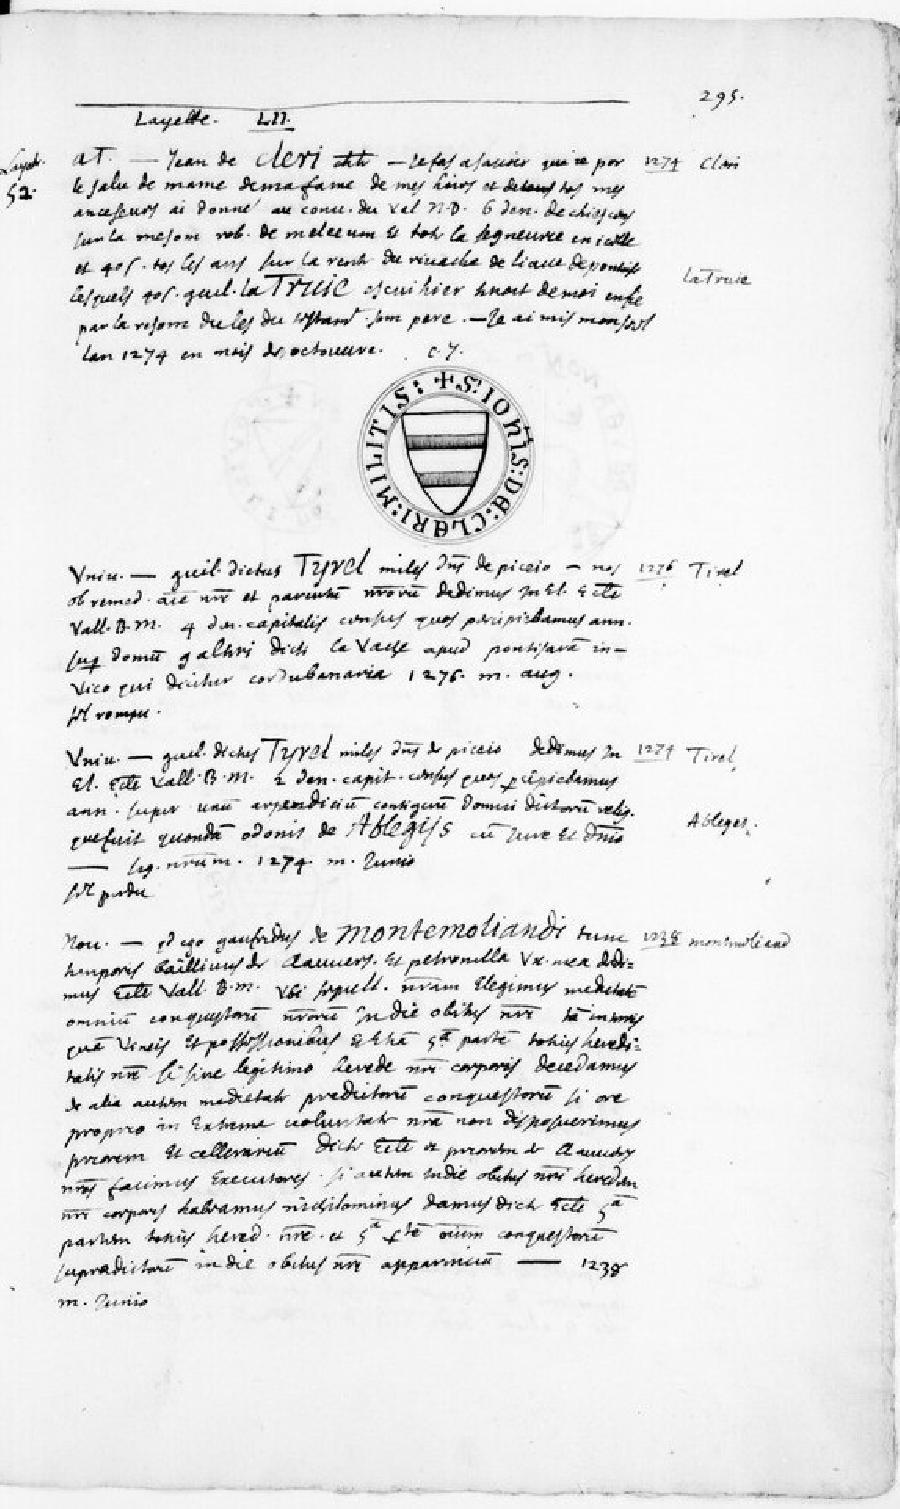 295.
Layette. LII.
Layette. 52.
aT. — Jean de Cleri — Je fas asavoir que je por 1274 Cleri
le salu de mame de ma fame de mes hoirs et de tous mes
ancesseurs ai donné au conv. du Val N.D. 6 den. de chiefcens
sur la meson rob. de meleun et tote la segneurie en icelle
et 40 s. tos les ans sur la rente du rivache de liaue de
lesquels 40 s. guil. la Truie escuihier tenoit de moi La Truie
par la reson du les du son pere. — Je ai mis mon
lan 1274 en mois de octouvre. c. J.
✢ S': IOHIS: DE: CLERI: MILITIS:
Univ. — guil. dictus Tyrel miles dns de piceio — nos 1276 Tirel
ob remed. aie nre et parentu nroru dedimus
Vall. B. M. 4 den. capitalis census quos percipiebamus ann.
sup domu galteri dicti la Vache apud pontisara in-
vico qui dicitur cordubanaria 1276. m. aug.
sel rompu.
Univ. — guil. dictus Tyrel miles dns de piceio dedimus In 1274 Tirel
El. Ecle Vall. B. M. 2 den. capit. census quos pcipiebamus
ann. super unu appendiciu contiguu domui dictoru relig.
que fuit quonda odonis de Ablegijs cu Jure et dnio Ableges.
— sig. nrum. 1274. m. Junio
sel perdu
Nov. — qd ego gaufridus de montemoliandi tunc 1238 montmoliand
temporis baillivus de Aauvers. et petronilla Ux. mea dedi-
mus Ecle Vall B. M. Ubi sepult. nram Elegimus medietate
omniu conquestoru nroru In die obitus nri
qua vineis et possessionibus et etia 5a parte totius heredi-
tatis nre si sine legitimo herede nri corporis decedamus
de alia autem medietate predictoru conquestoru si ore
proprio in Extrema voluntate nra non disposuerimus
priorem et cellerariu dicte Ecle et priorem de Aauvers
nros facimus Executores. si autem In die obitus nri heredem
nri corporis habeamus nichilominus damus dicte Ecle 5a
partem totius hered. nre. et 5a pte oium conquestoru
supradictoru in die obitus nri apparentiu — 1238
m. Junio